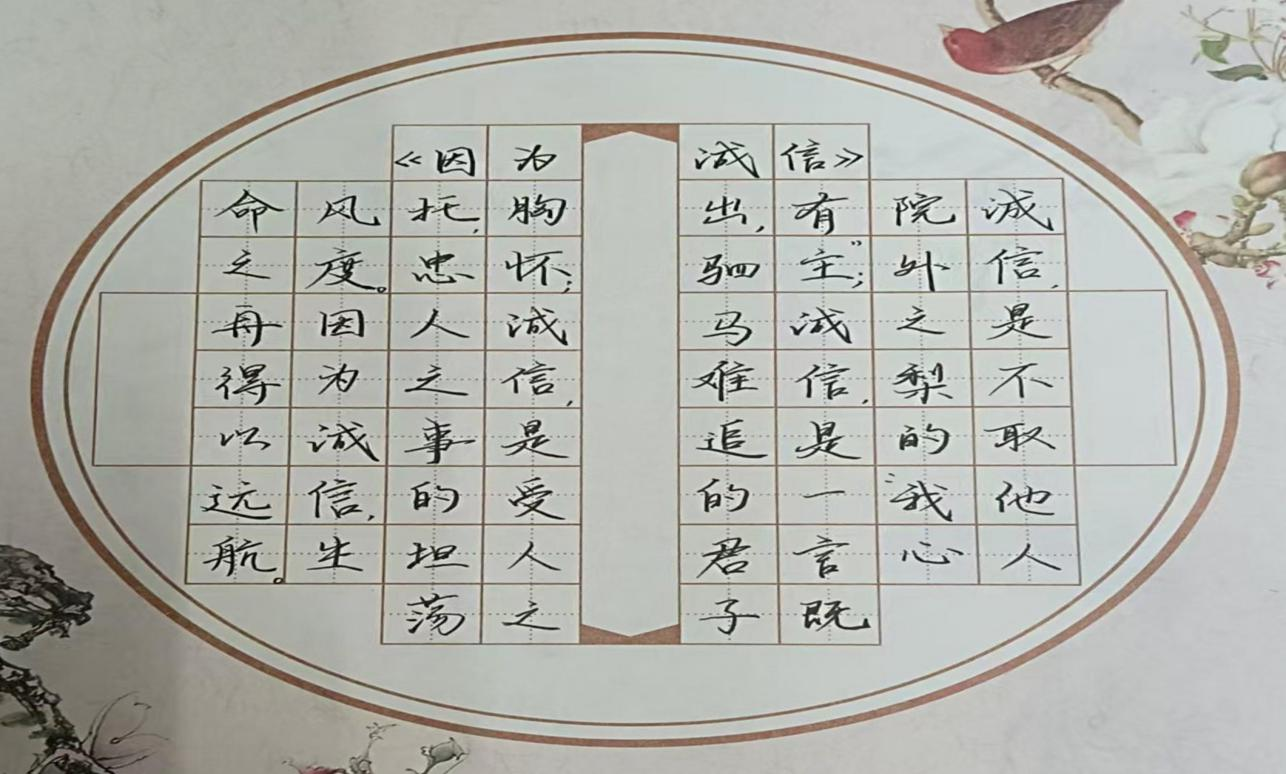 《因为诚信》
诚信,是不取他人
院外之梨的“我心
有主”;诚信,是一言既
出,驷马难追的君子
胸怀;诚信,是受人之
托,忠人之事的坦荡
风度。因为诚信,生
命之舟得以远航。